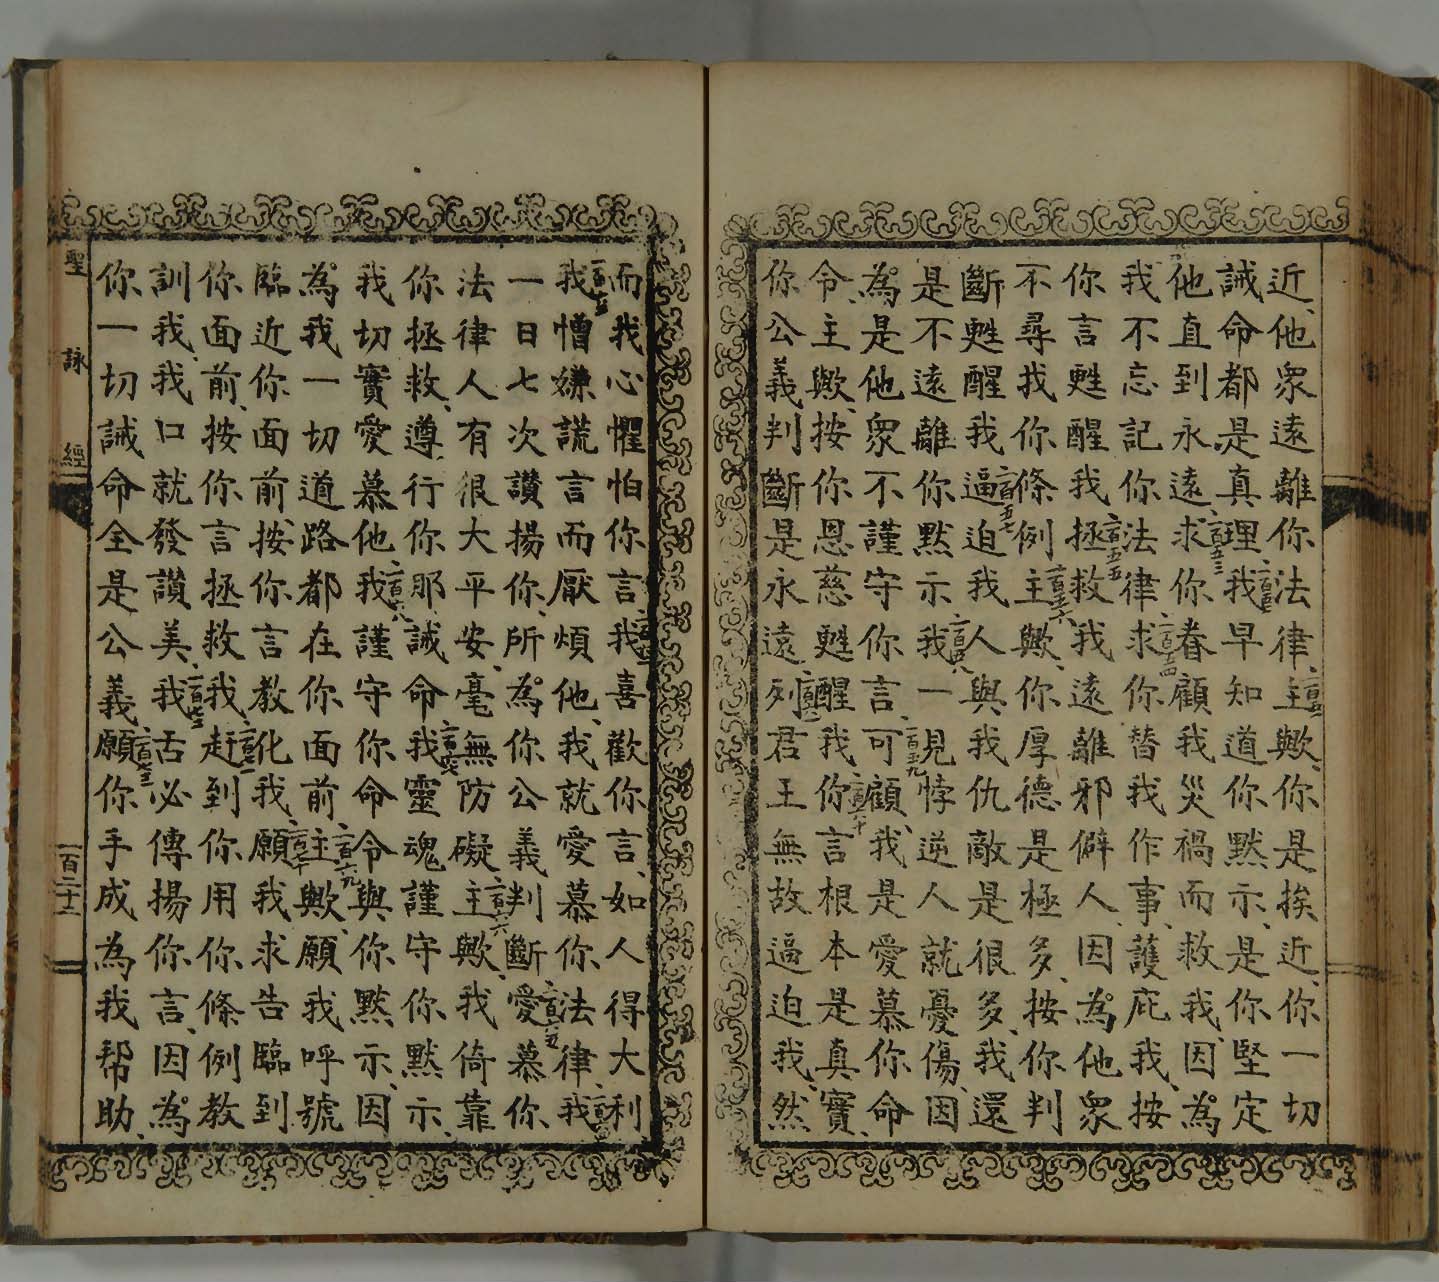 近、他衆遠離你法律、主歟、你是挨近、你一切
誡命都是真理、我早知道你黙示、是你堅定
他直到永遠、求你眷顧我災禍而救我、因為
我不忘記你法律求你替我作事、護庇我、按
你言甦醒我拯救我遠離邪僻人、因為他衆
不尋找你條例主歟、你厚德是極多、按你判
斷甦醒我逼迫我人與我仇敵是很多、我還
是不遠離你黙示我一見悖逆人就憂傷、因
為是他衆不謹守你言、可顧我是愛慕你命
令、主歟、按你恩慈甦醒我你言根本是真實、
你公義判斷是永遠、列君王無故逼迫我、然
而我心懼怕你言我喜歡你言、如人得大利
我憎嫌謊言而厭煩他、我就愛慕你法律、我
一日七次讚揚你、所為你公義判斷愛慕你
法律人有很大平安、毫無防礙、主歟、我倚靠
你拯救、遵行你那誡命我靈魂謹守你黙示、
我切實愛慕他我謹守你命令與你黙示、因
為我一切道路都在你面前、主歟、願我呼號
臨近你面前、按你言教化我願我求告臨到
你面前、按你言拯救我、赶到你用你條例教
訓我、我口就發讚美、我舌必傳揚你言、因為
你一切誡命全是公義願你手成為我帮助、
聖詠經